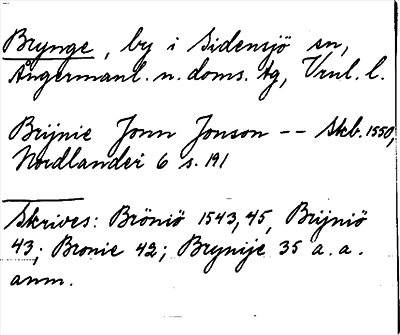 Brynge, by i Sidensjö sn,
Ångermanl. n. doms. tg, Vrnl. l.
Brijnie Jonn Jonson -- Skb. 1550,
Nordlander 6 s. 191
Skrives: Bröniö 1543, 45, Brijniö
43; Bronie 42; Brynije 35 a. a.
anm.